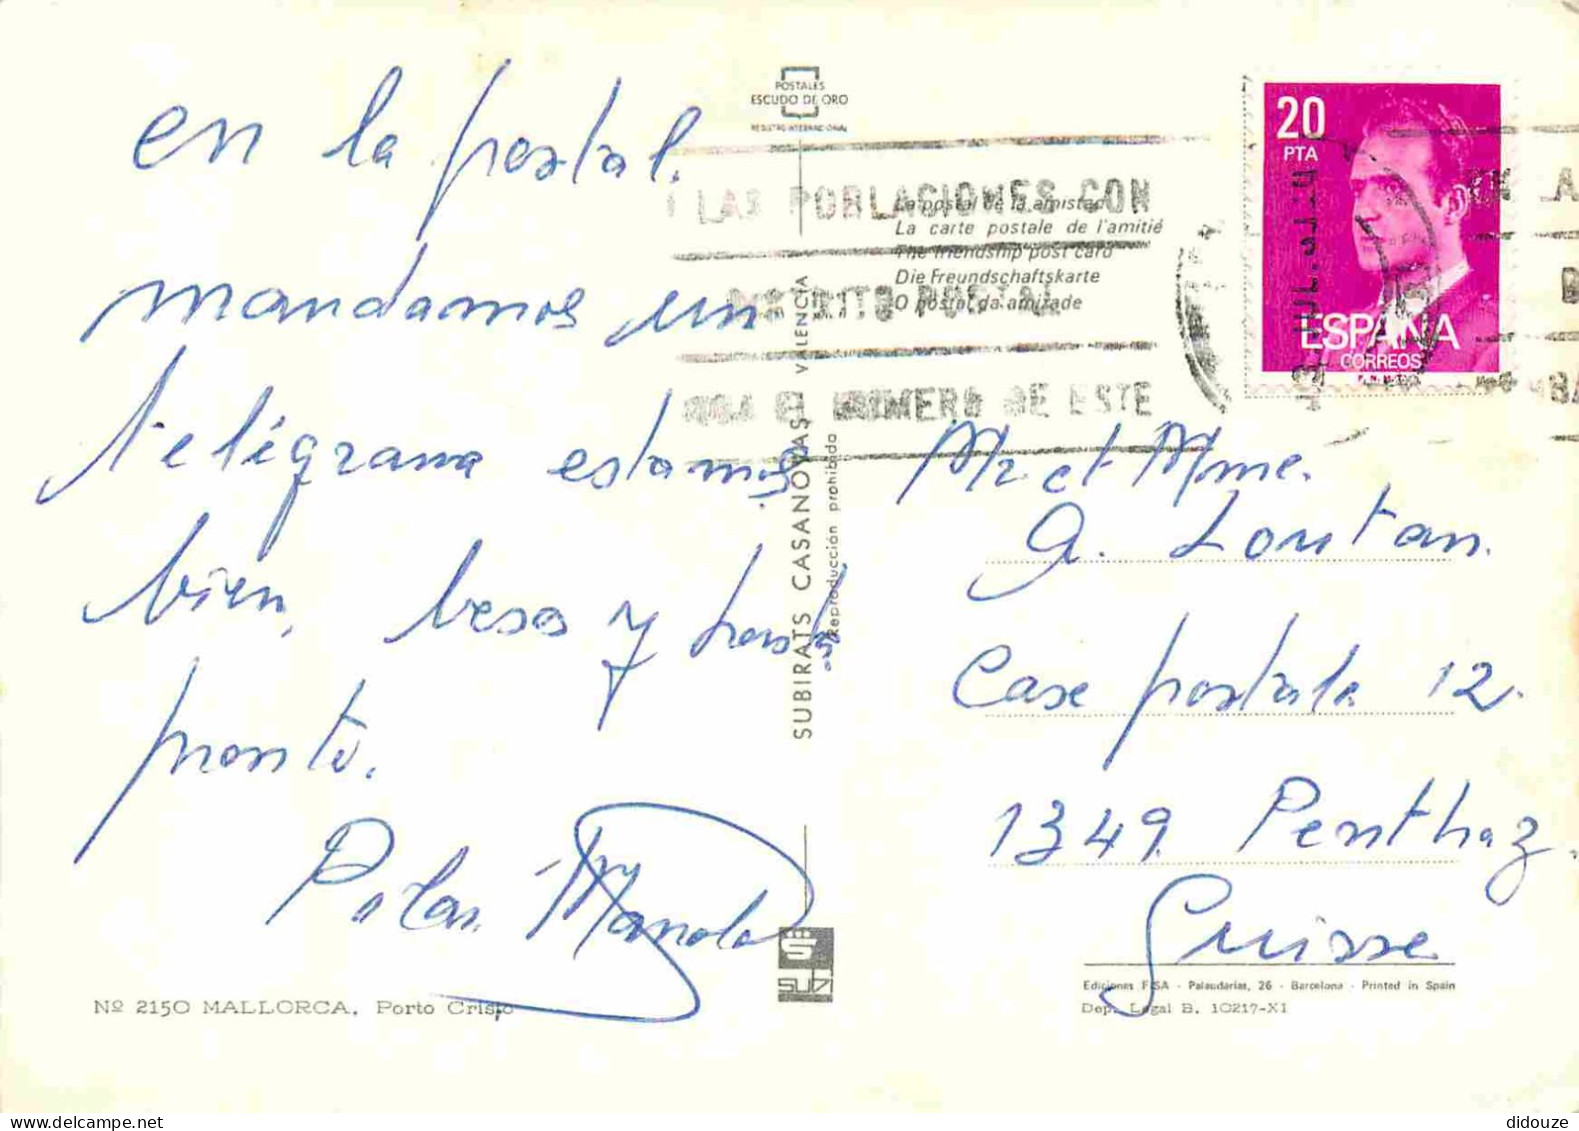 en la postal.
mandamos un
telégrama estamos
bien, besos y hasta
pronto.
Pilar. Manolo
Nº 2150 MALLORCA. Porto Cristo
POSTALES
ESCUDO DE ORO
REGISTRO INTERNACIONAL
La postal de la amistad
La carte postale de l'amitié
The friendship post card
Die Freundschaftskarte
O postal da amizade
LAS POBLACIONES CON
DISTRITO POSTAL
EL NUMERO DE ESTE
20
PTA
ESPAÑA
CORREOS
SUBIRATS CASANOVAS, VALENCIA
Reproducción prohibida
Mr et Mme.
G. Loutan.
Case postale 12.
1349. Penthaz.
Suisse
subi
Ediciones FISA - Palaudarias, 26 - Barcelona - Printed in Spain
Dep. Legal B. 10217-XI
didouze